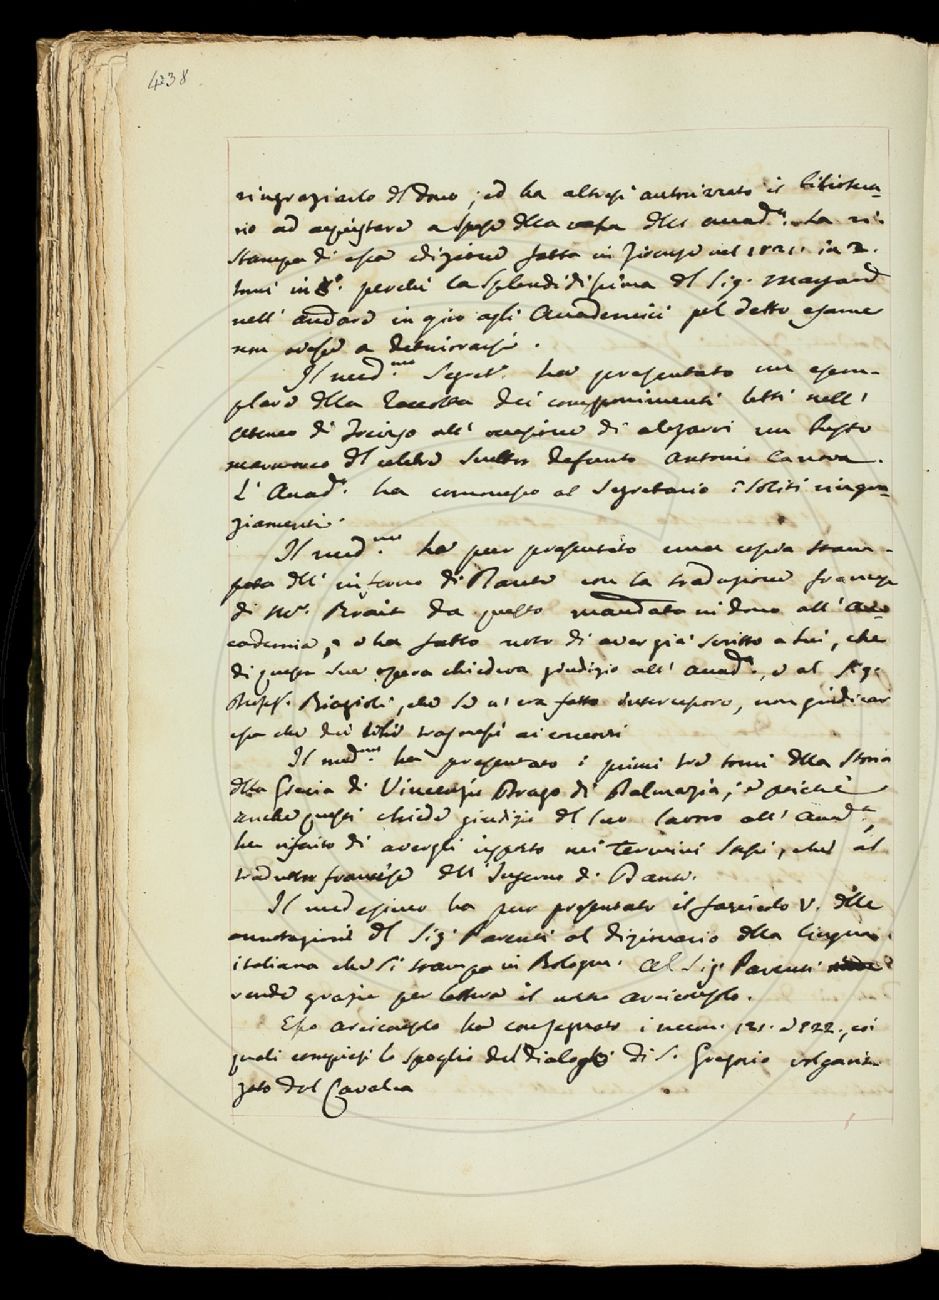 438
ringraziarlo del dono; ed ha altresì autorizzato il biblioteca-
rio ad acquistare a spese della cassa dell' Accad.a la ri-
stampa di essa edizione fatta in Firenze nel 1821. in 2.
tomi in 8.o perché la splendidissima del Sig.
nell' andare in giro agli Accademici pel detto esame
non avesse a deteriorarsi.
Il med.mo Segret.o ha presentato un esem-
plare della Raccolta dei componimenti letti nell'
Ateneo di Treviso all' occasione di alzarvi un busto
marmoreo del celebre Scultor defunto Antonio Canova.
L' Accad.a ha commesso al Segretario i soliti ringra-
ziamenti.
Il med.mo ha pur presentato una copia stam-
pata dell' inferno di Dante con la traduzione francese
di Mr. Brait da questo mandata in dono all' Ac-
cademia, e ha fatto noto di aver già scritto a lui, che
di questa sua opera chiedeva giudizio all' Accad.a, e al Sig.
Profess. Biagioli, che se n' era fatto interceptore, non giudicar
essa che dei libri trasmessi ai concorsi
Il med.mo ha presentato i primi tre tomi della Storia
della Grecia di Vincenzio Drago di Dalmazia, e poiché
anche questi chiede giudizio del suo lavoro all' Accad.a,
ha riferito di avergli risposto nei termini stessi, che al
traduttor francese dell' Inferno di Dante.
Il medesimo ha pur presentato il fascicolo V. delle
annotazioni del Sig. Parenti al dizionario della lingua
italiana che si stampa in Bologna. Al Sig. Parenti
rende grazie per lettera il nostro arciconsolo.
Esso arciconsolo ha consegnato i num. 121. e 122., coi
quali compiesi lo spoglio del Dialogo di S. Gregorio volgariz-
zato dal Cavalca